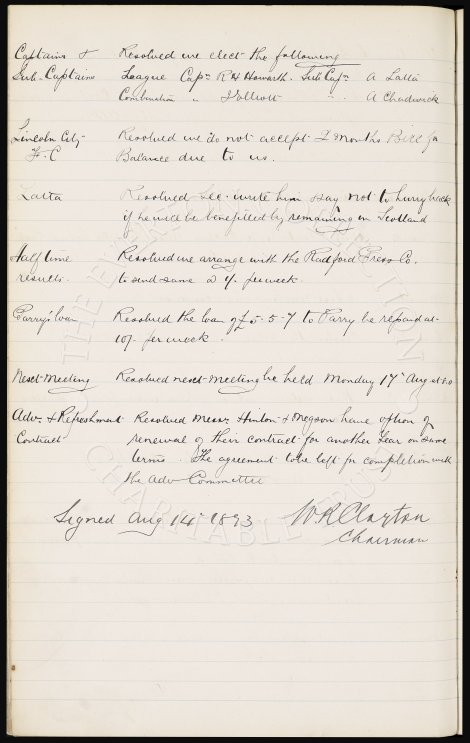 Captains & Resolved we elect the following
Sub-Captains League Capn R H Howarth. Sub Capn A Latta
Combination " J Elliott " " A Chadwick
Lincoln City Resolved we do not accept 2 months Bill for
F. C Balance due to us.
Latta Resolved Sec. write him say not to hurry back
if he will be benefitted by remaining in Scotland
Half time Resolved we arrange with the Radford Press Co.
results. to send same @ per week.
Parry's loan Resolved the loan of £5-5-7 to Parry be repaid at
10/- per week.
Next Meeting Resolved next meeting be held Monday 17th Aug at
Adv. & Refreshment Resolved Messrs Hinton & Megson have option of
Contract renewal of their contract for another Year on same
terms. The agreement to be left for completion with
the Adv Committee
Signed Aug 14th 1893 W R Clayton
Chairman
THE EVERTON COLLECTION
CHARITABLE TRUST